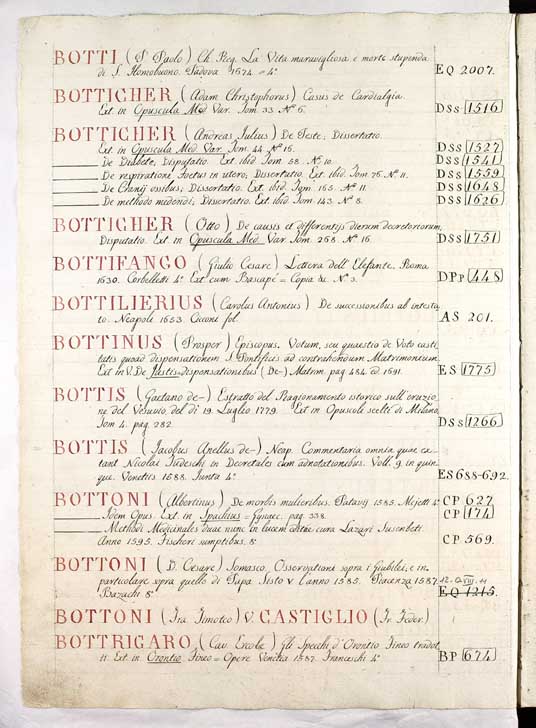 BOTTI (P. Paolo) Ch. Reg. La Vita maravigliosa e morte stupenda
di S. Homobuono. Padova 1674 = 4.° EQ 2007.
BOTTICHER (Adam Christophorus) Casus de Cardialgia.
Ext. in Opuscula Med. Var. Tom. 33. N.° 6. DSs 1516
BOTTICHER (Andreas Julius) De Peste; Dissertatio.
Ext. in Opuscula Med. Var. Tom. 44. N.° 16. DSs 1527
De Diabete; Disputatio. Ext. ibid. Tom. 58. N.° 10. DSs 1541
De respiratione Foetus in utero; Dissertatio. Ext. ibid. Tom. 76. N.° 11. DSs 1559
De ossibus; Dissertatio. Ext. ibid. Tom. 165. N.° 11. DSs 1648
De methodo medendi; Dissertatio. Ext. ibid. Tom. 143. N.° 8. DSs 1626
BOTTICHER (Otto) De causis et differentijs dierum decretoriorum,
Disputatio. Ext. in Opuscula Med. Var. Tom. 268. N.° 16. DSs 1751
BOTTIFANGO (Giulio Cesare) Lettera dell'Elefante. Roma
1630. Corbelletti 4.° Ext. cum Basapé = Copia &. N.° 3. DPp 448
BOTTILIERIUS (Carolus Antonius) De successionibus ab intesta
to. Neapoli 1653. Ciconi fol. AS 201.
BOTTINUS (Prosper) Episcopus. Votum, seu quaestio de Voto casti
tatis quoad dispensationem S. Pontificis ad contrahendum Matrimonium.
Ext. in V. De Justis = dispensationibus (De-) Matrim. pag. 484. ed. 1691. ES 1775
BOTTIS (Gaetano de-) Estratto del Ragionamento istorico sull'eruzio
ne del Vesuvio, del di 19. Luglio. 1779. Ext. in Opuscoli scelti di Milano,
Tom. 4. pag. 282. DSs 1266
BOTTIS (Jacobus Anellus de-) Neap. Commentaria omnia quae ex
tant Nicolai Tudeschi in Decretales cum adnotationibus. Voll. 9. in quin
que. Venetiis 1688. Junta 4.° ES 688-692.
BOTTONI (Albertinus) De morbis mulieribus. Patavij 1585. Mejetti 4.° CP 627
Idem Opus. Ext. in Spachius = Gynaec. pag. 338. CP 174
Methodi Medicinales duae nunc in lucem editae cura Lazari Susenbeti.
Anno 1595. Fischeri sumptibus. 8.° CP 569.
BOTTONI (D. Cesare) Somasco. Osservationi sopra i Giubilei; e in
particolare sopra quello di Papa Sisto V. l'anno 1585. Piacenza 1587. 12. Q. VIII. 11
Bazachi 8.° EQ 1215.
BOTTONI (Fra Timoteo) V. CASTIGLIO (Fr. Feder.)
BOTTRIGARO (Cav. Ercole) Gli Specchi d'Orontio Fineo tradot
ti. Ext. in Orontio. Fineo = Opere Venetia 1587. Franceschi 4.° BP 674